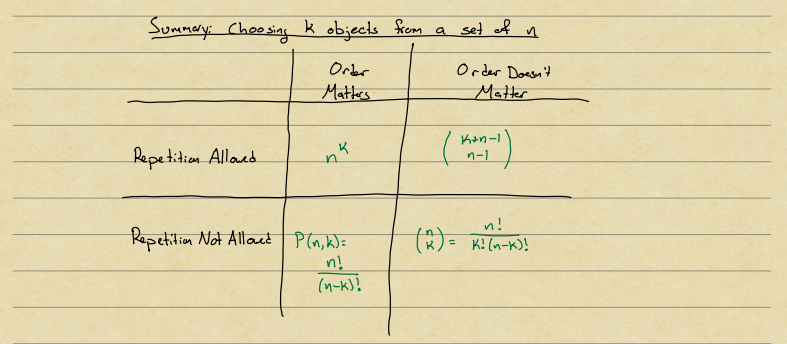 Summary: Choosing k objects from a set of n
Order Matters
Order Doesn't Matter
Repetition Allowed
n^k
(k+n-1 n-1)
Repetition Not Allowed
P(n,k)= n!/(n-k)!
(n k) = n!/k!(n-k)!